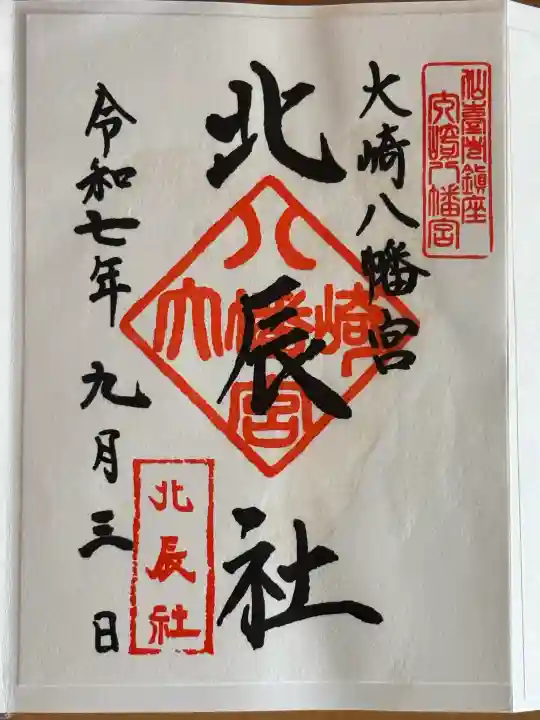 仙臺総鎮座
大崎八幡宮
大崎八幡宮
北辰社
八
大幡崎
宮
北辰社
令和七年九月三日